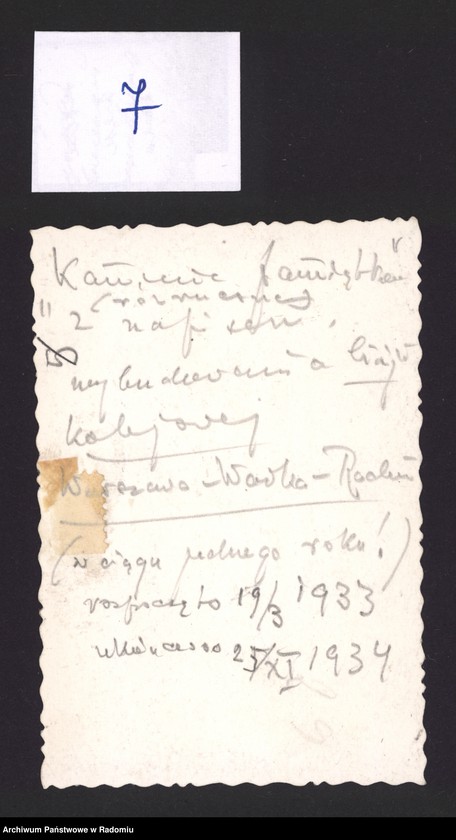 7
Kamienie pamiątkowe"
" z napisem
5
wybudowania linji
kolejowej
Warszawa-Warka-Radom
(w ciągu jednego roku!)
rozpoczęto 19/3 1933
ukończono 25/XI 1934
Archiwum Państwowe w Radomiu